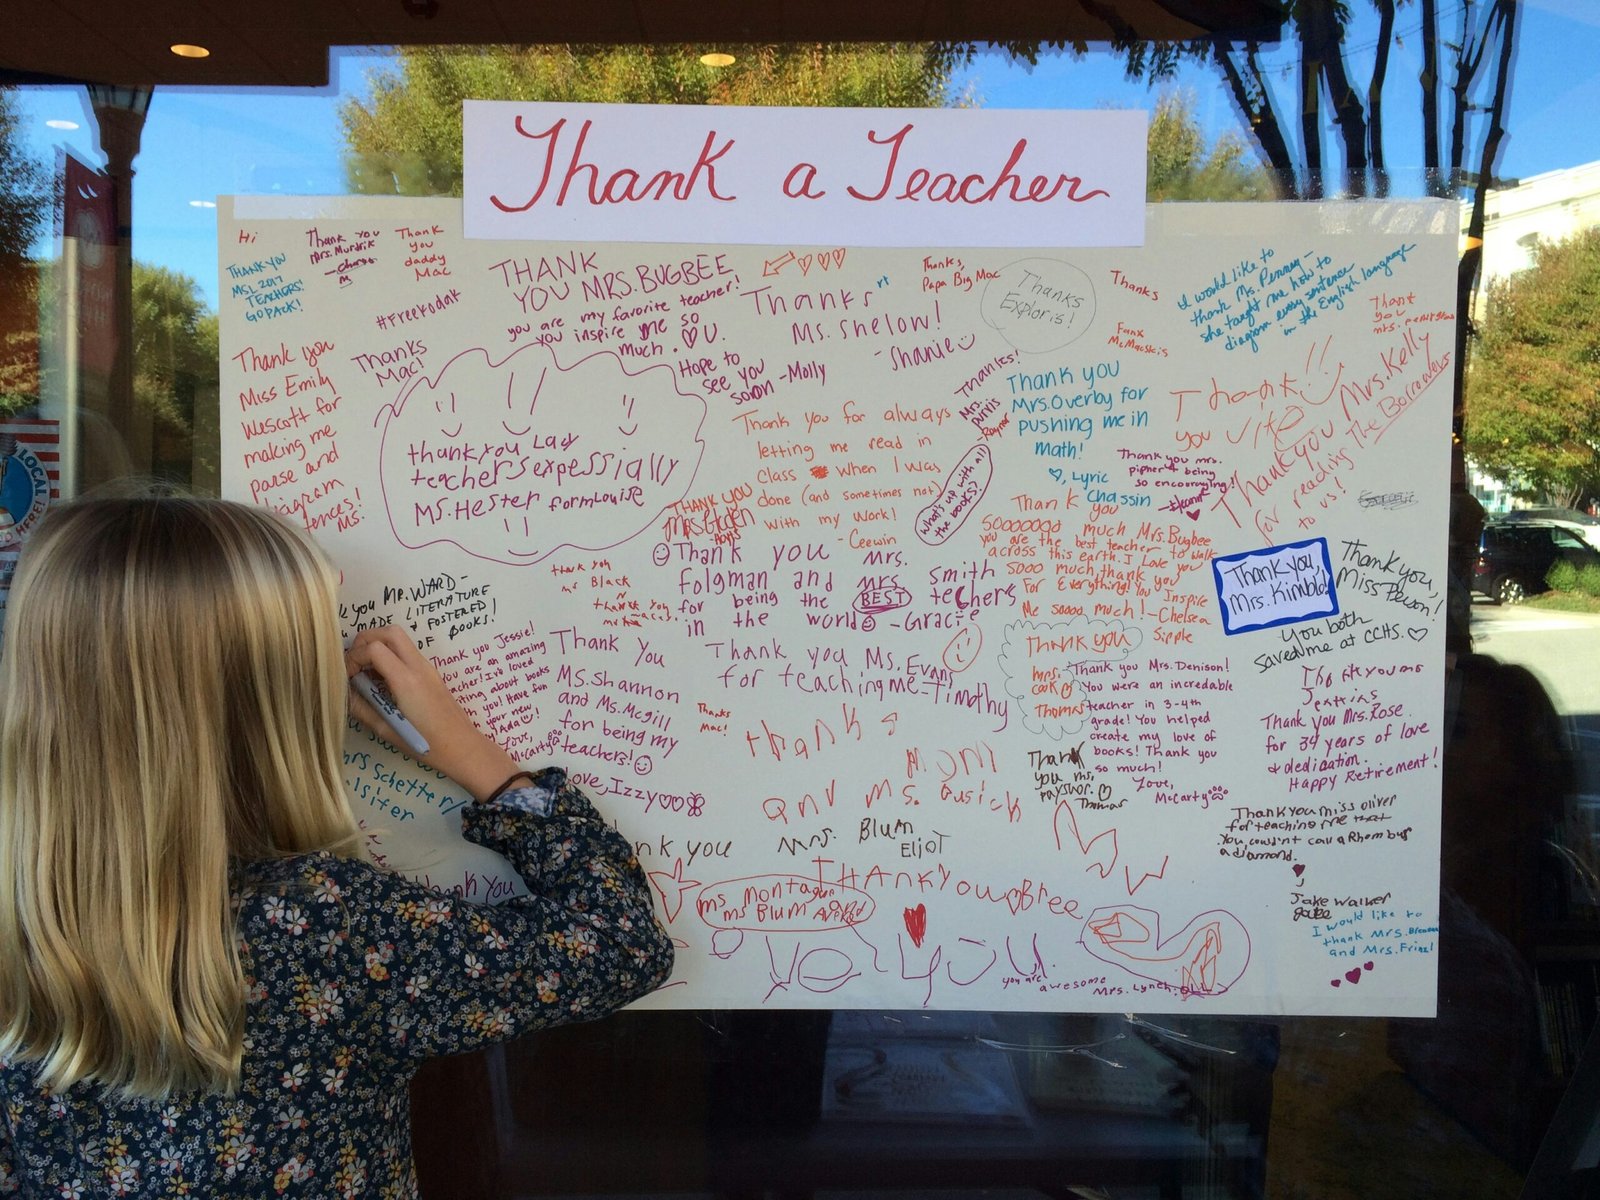 Thank a Teacher
Hi
THANK YOU
MSL 2017
TEACHERS!
GO PACK!
Thank you
Mrs. Murdrik
Thank
you
daddy
Mac
#FreeKodak
THANK
YOU MRS. BUGBEE
you are my favorite teacher!
you inspire me so
much. U.
Hope to
see you
soon -Molly
Thanks
Ms. Shelow!
-Shanie
Thanks,
Papa Big Mac
Thanks
Exploris!
Thanks
Fanx
McMarskis
I would like to
thank Ms. Penny-
she taught me how to
diagram every sentence
in the English language
Thank
you
Thanks
Mac!
Thank you
Miss Emily
Wescott for
making me
parse and
diagram
tences!
Ms.
thankyou Lady
teachers expessially
Ms. Hester form Louise
Thank you for always
letting me read in
class when I was
done (and sometimes not)
with my work!
- Ceewin
Thanks!
Mrs.
Purvis
-Raynor
What's up with all
the books?
Thank you
Mrs. Overby for
pushing me in
math!
Lyric
Chassin
Thank you Mrs.
Pipher 4 being
so encouraging!
Thank
you
Thank you Mrs. Kelly
for reading The Borrowers
to us!
THANK YOU
Thank you Mrs.
Folgman and Mrs. Smith
for being the BEST teachers
in the world -Gracie
Thank
you
Sooooooo much Mrs. Bugbee
you are the best teacher to walk
across this earth. I love you
sooo much, thank you
For Everything! You Inspire
Me soooo much! -Chelsea
Sipple
Thank you,
Mrs. Kimble!
Thank you,
Miss Person!
You both
saved me at CCHS.
YOU MR. WARD-
MADE LITERATURE
& FOSTERED
OF BOOKS!
thank you
mr Black
Thank you Jessie!
You are an amazing
teacher! I've loved
about books
with you! Have fun
with your new
Love,
McCarty
Thank You
Ms. Shannon
and Ms. Mcgill
for being my
teachers!
Love, Izzy
Thank you Ms. Evans
for teaching me -Timothy
Thanks
Mac!
Thank you
Mrs.
Cook
Thomas
Thank you Mrs. Denison!
You were an incredable
teacher in 3-4th
grade! You helped
create my love of
books! Thank you
so much!
Love,
McCarty
Thank you Mrs. Rose
for 34 years of love
& dedication.
Happy Retirement!
mrs Schetter/
thanks
Mom
and Ms. Gusick
Thank
you ms.
Thomas
nk you Mrs. Blum
Eliot
Thank you miss oliver
for teaching me that
You couldn't call a Rhombus
a diamond.
Jake Walker
thank you
ms montague
ms Blum
THANK YOU Bree
YOU
you are
awesome
Mrs. Lynch
I would like to
thank Mrs.
and Mrs.